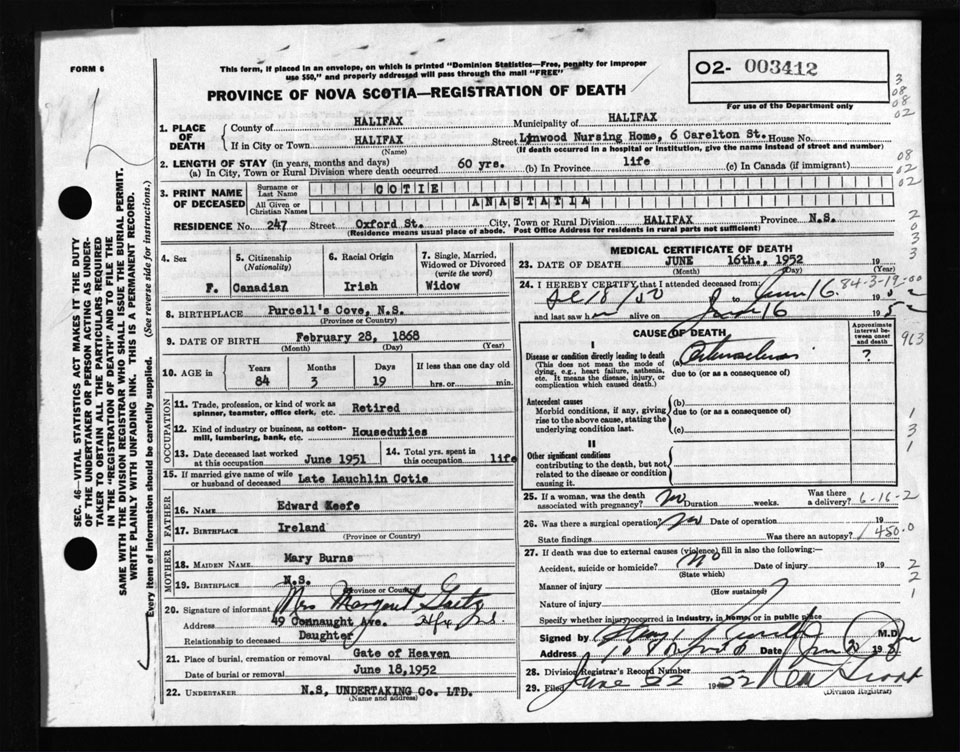 FORM 6
This form, if placed in an envelope, on which is printed "Dominion Statistics—Free, penalty for improper
use $50," and properly addressed will pass through the mail "FREE"
PROVINCE OF NOVA SCOTIA—REGISTRATION OF DEATH
02- 003412
For use of the Department only
3
08
08
02
08
02
2
0
3
3
SEC. 46—VITAL STATISTICS ACT MAKES IT THE DUTY
OF THE UNDERTAKER OR PERSON ACTING AS UNDER-
TAKER TO OBTAIN ALL THE PARTICULARS REQUIRED
IN THE "REGISTRATION OF DEATH" AND TO FILE THE
SAME WITH THE DIVISION REGISTRAR WHO SHALL ISSUE THE BURIAL PERMIT.
WRITE PLAINLY WITH UNFADING INK. THIS IS A PERMANENT RECORD.
Every item of information should be carefully supplied. (See reverse side for instructions.)
1. PLACE OF DEATH
County of HALIFAX Municipality of HALIFAX
If in City or Town HALIFAX Street Linwood Nursing Home, 6 Carelton St. House No.
(Name) (If death occurred in a hospital or institution, give the name instead of street and number)
2. LENGTH OF STAY (in years, months and days)
(a) In City, Town or Rural Division where death occurred 60 yrs. (b) In Province life (c) In Canada (if immigrant)
3. PRINT NAME OF DECEASED
Surname or Last Name COTIE
All Given or Christian Names ANASTATIA
RESIDENCE No. 247 Street Oxford St. City, Town or Rural Division HALIFAX Province N.S.
(Residence means usual place of abode. Post Office Address for residents in rural parts not sufficient)
4. Sex F.
5. Citizenship (Nationality) Canadian
6. Racial Origin Irish
7. Single, Married, Widowed or Divorced (write the word) Widow
8. BIRTHPLACE Purcell's Cove, N.S.
(Province or Country)
9. DATE OF BIRTH February 28, 1868
(Month) (Day) (Year)
10. AGE in Years 84 Months 3 Days 19 If less than one day old
hrs. or min.
OCCUPATION
11. Trade, profession, or kind of work as spinner, teamster, office clerk, etc. Retired
12. Kind of industry or business, as cotton-mill, lumbering, bank, etc. Houseduties
13. Date deceased last worked at this occupation June 1951
14. Total yrs. spent in this occupation life
15. If married give name of wife or husband of deceased Late Lauchlin Cotie
FATHER
16. NAME Edward Keefe
17. BIRTHPLACE Ireland
(Province or Country)
MOTHER
18. MAIDEN NAME Mary Burns
19. BIRTHPLACE N.S.
(Province or Country)
20. Signature of informant Mrs Margaret Gaetz
Address 49 Connaught Ave.
Relationship to deceased Daughter
21. Place of burial, cremation or removal Gate of Heaven
Date of burial or removal June 18,1952
22. UNDERTAKER N.S, UNDERTAKING Co. LTD.
(Name and address)
MEDICAL CERTIFICATE OF DEATH
23. DATE OF DEATH JUNE 16th., 1952 19
(Month) (Day) (Year)
24. I HEREBY CERTIFY that I attended deceased from
to June 16 1952
84-3-19-00
and last saw her alive on June 16 1952
CAUSE OF DEATH
Approximate interval between onset and death
963
I
Disease or condition directly leading to death (a) ?
(This does not mean the mode of dying, e.g., heart failure, asthenia, etc. It means the disease, injury, or complication which caused death.)
due to (or as a consequence of)
Antecedent causes
Morbid conditions, if any, giving rise to the above cause, stating the underlying condition last.
(b)
due to (or as a consequence of)
(c)
1
3
1
II
Other significant conditions
contributing to the death, but not related to the disease or condition causing it.
25. If a woman, was the death associated with pregnancy? No Duration weeks. Was there a delivery? 6-16-2
26. Was there a surgical operation? No Date of operation 19
State findings Was there an autopsy? 450.0
27. If death was due to external causes (violence) fill in also the following:
Accident, suicide or homicide? No Date of injury 19
(State which)
Manner of injury
(How sustained)
Nature of injury
2
2
1
Specify whether injury occurred in industry, in home, or in public place
Signed by M.D.
Address Date
28. Division Registrar's Record Number
29. Filed June 22 1952
(Division Registrar)